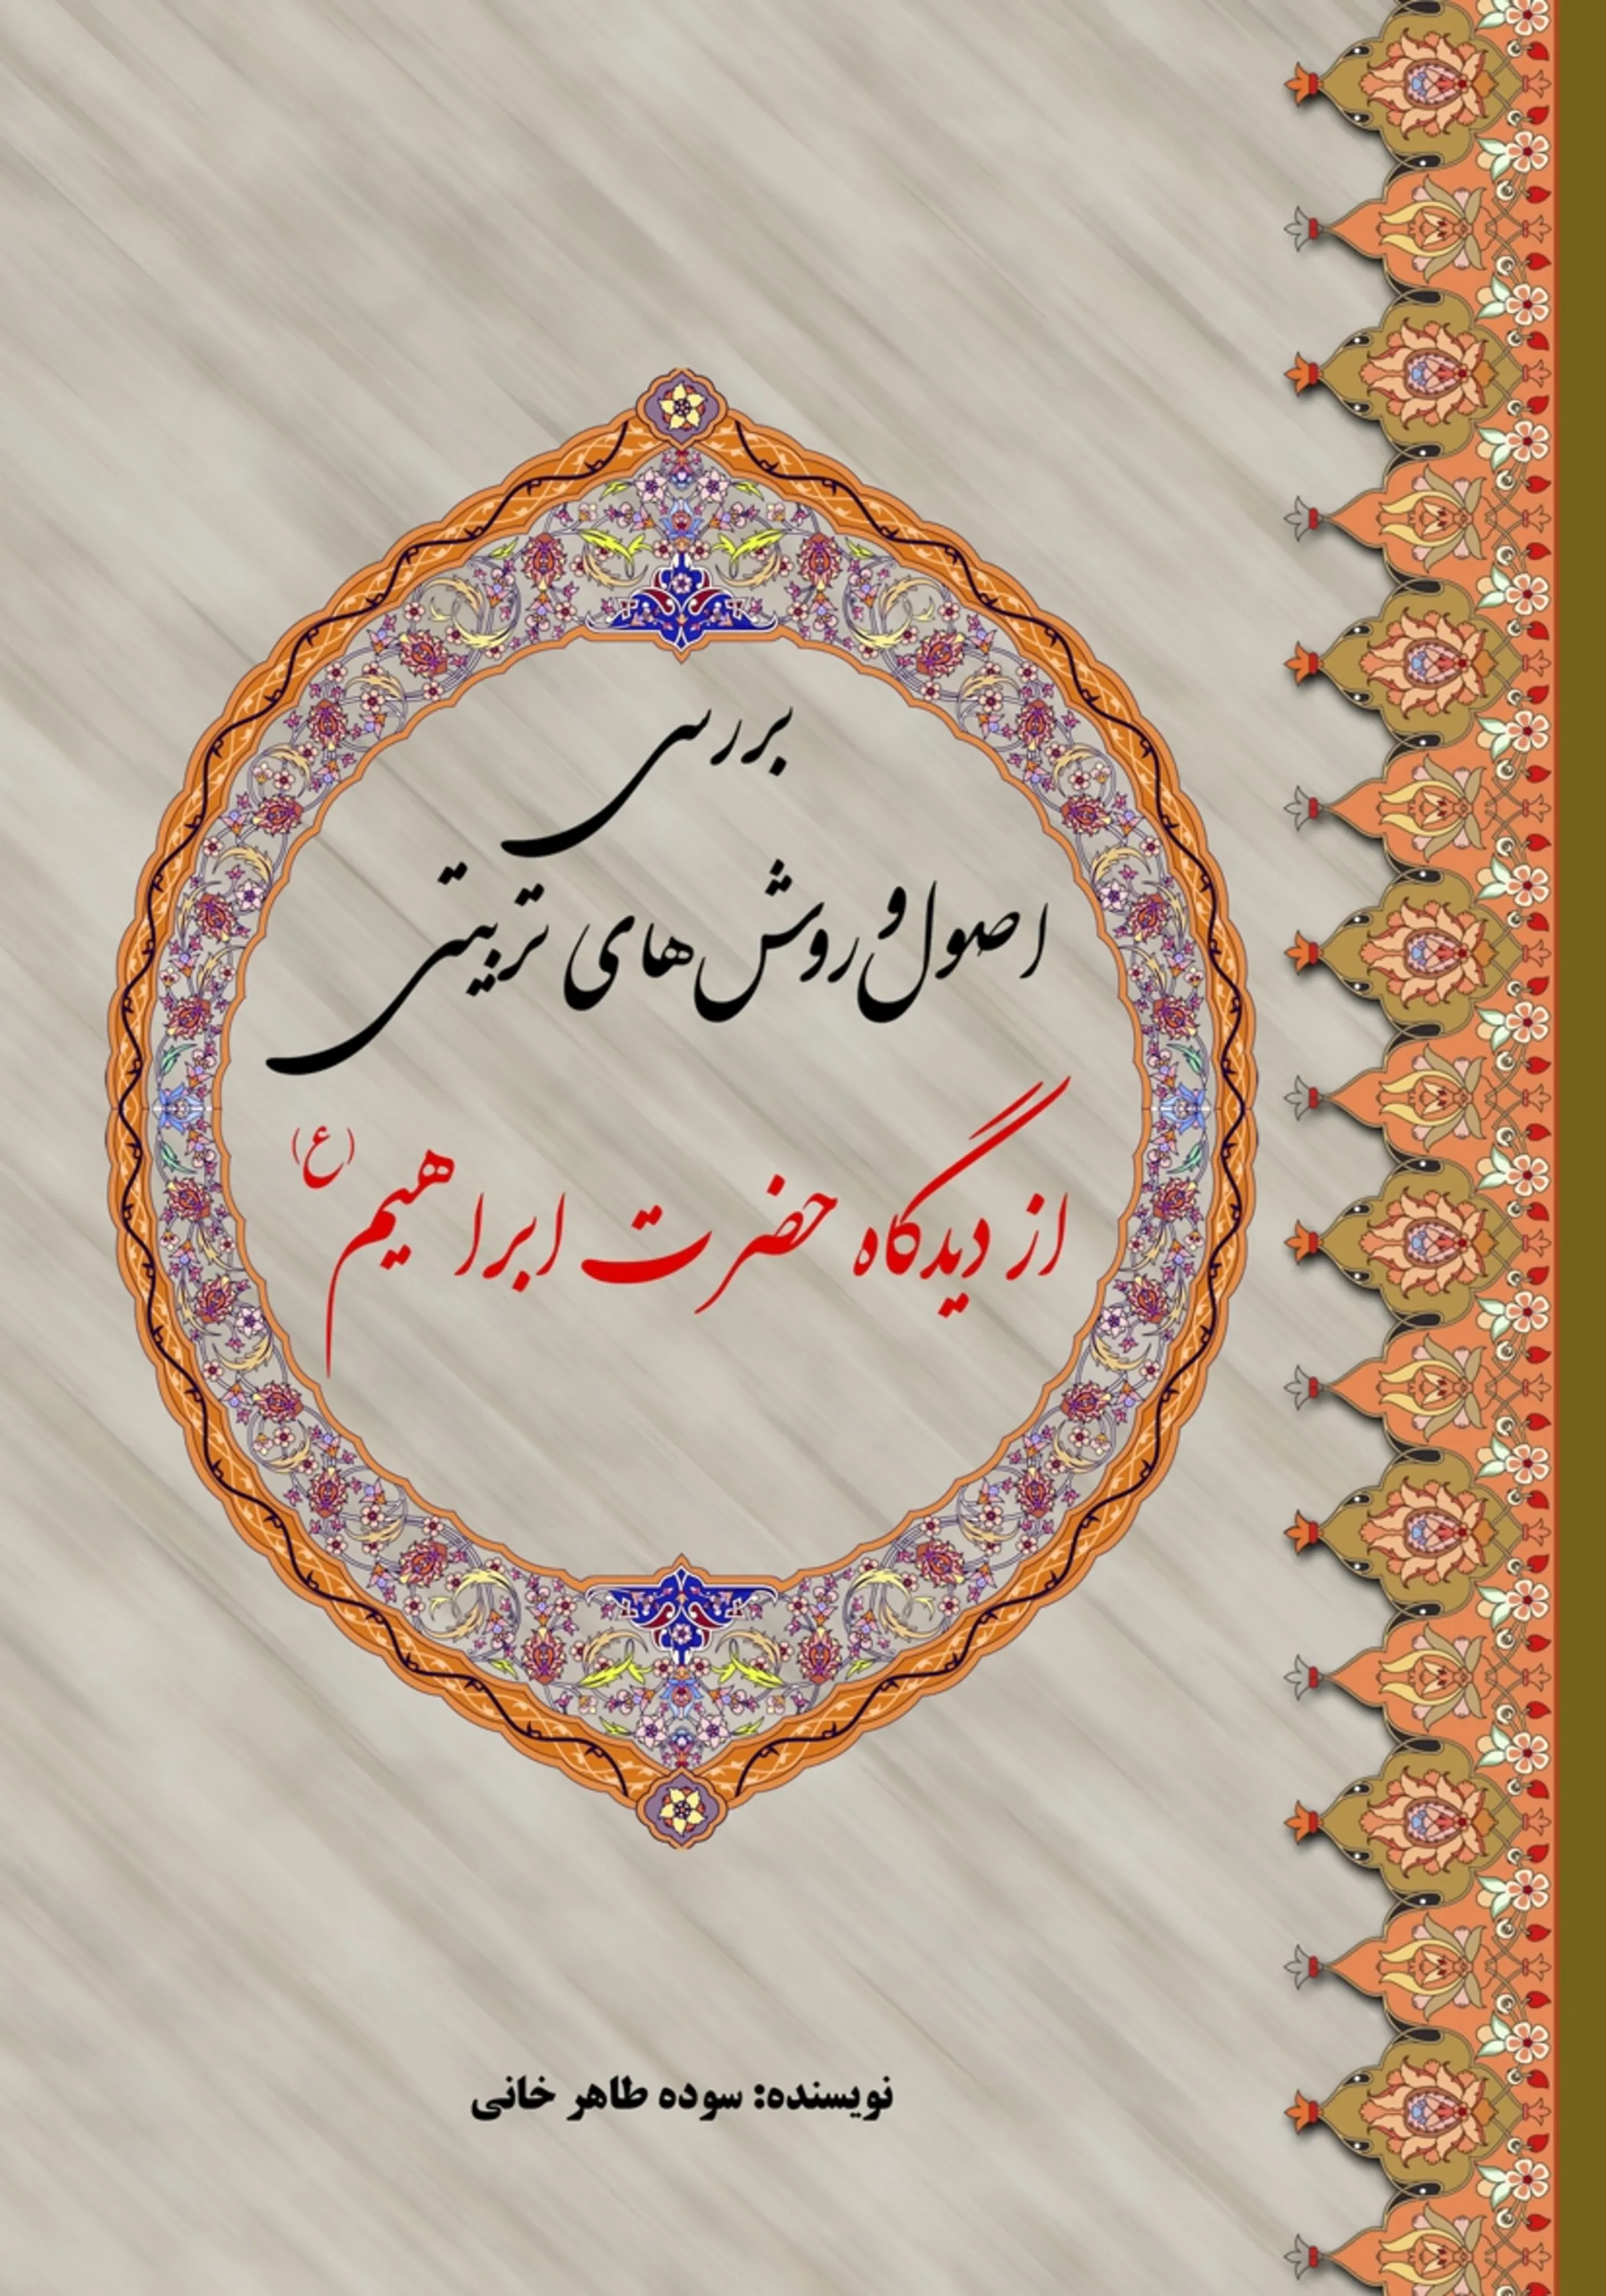 بررسی
اصول و روش های تربیتی
از دیدگاه حضرت ابراهیم (ع)
نویسنده: سوده طاهر خانی